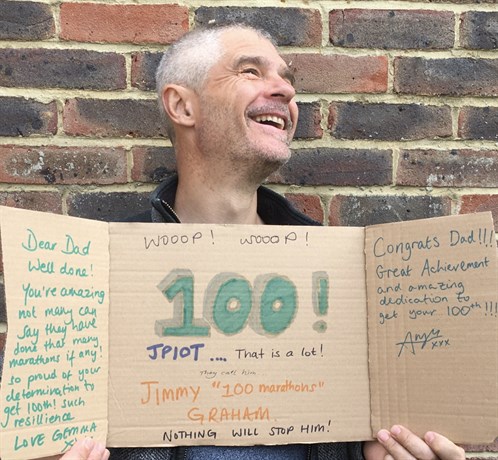 Dear Dad
Well done!
You're amazing
not many can
say they have
done that many
marathons if any!
so proud of your
determination to
get 100th! such
resillience
LOVE GEMMA
WOOOP! WOOOP!
100!
JPIOT .... That is a lot!
They call him
Jimmy "100 marathons"
GRAHAM
NOTHING WILL STOP HIM!
Congrats Dad!!!
Great Achievement
and amazing
dedication to
get your 100th!!!
xxx